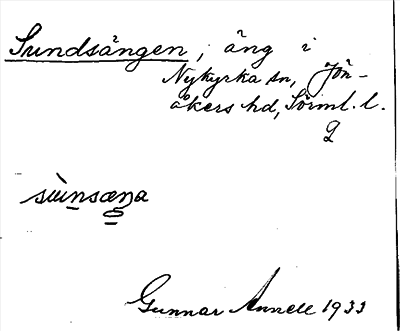 Sundsängen, äng i
Nykyrka sn, Jön-
åkers hd, Sörml. l.
sùnsæŋa
Gunnar Annell 1933